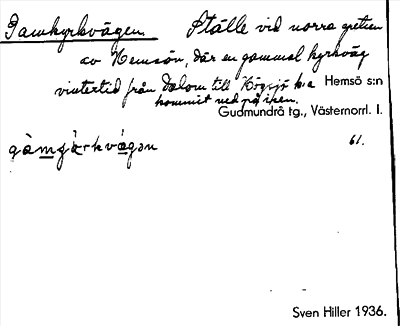 Gamkyrkvägen. Ställe vid norra gränsen
av Hemsön, där en gammal kyrkväg
vintertid från Dalom till Högsjö k:a Hemsö s:n
kommit ned på isen.
Gudmundrå tg., Västernorrl. l.
61.
Sven Hiller 1936.